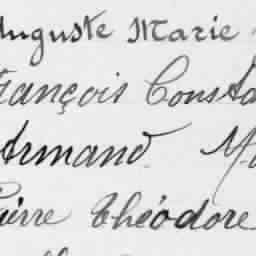 Auguste Marie
François Consta
Armand. M
Pierre Théodore